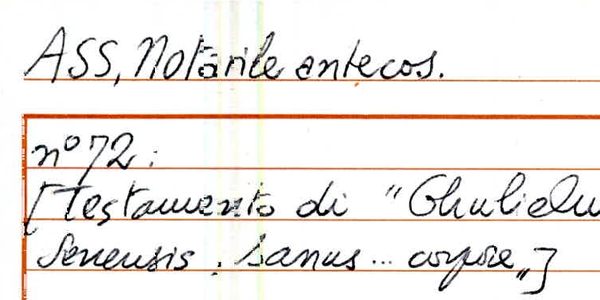 ASS, Notarile antecos.
n° 72:
[Testamento di "Ghulielu
Senensis. sanus... corpore"]